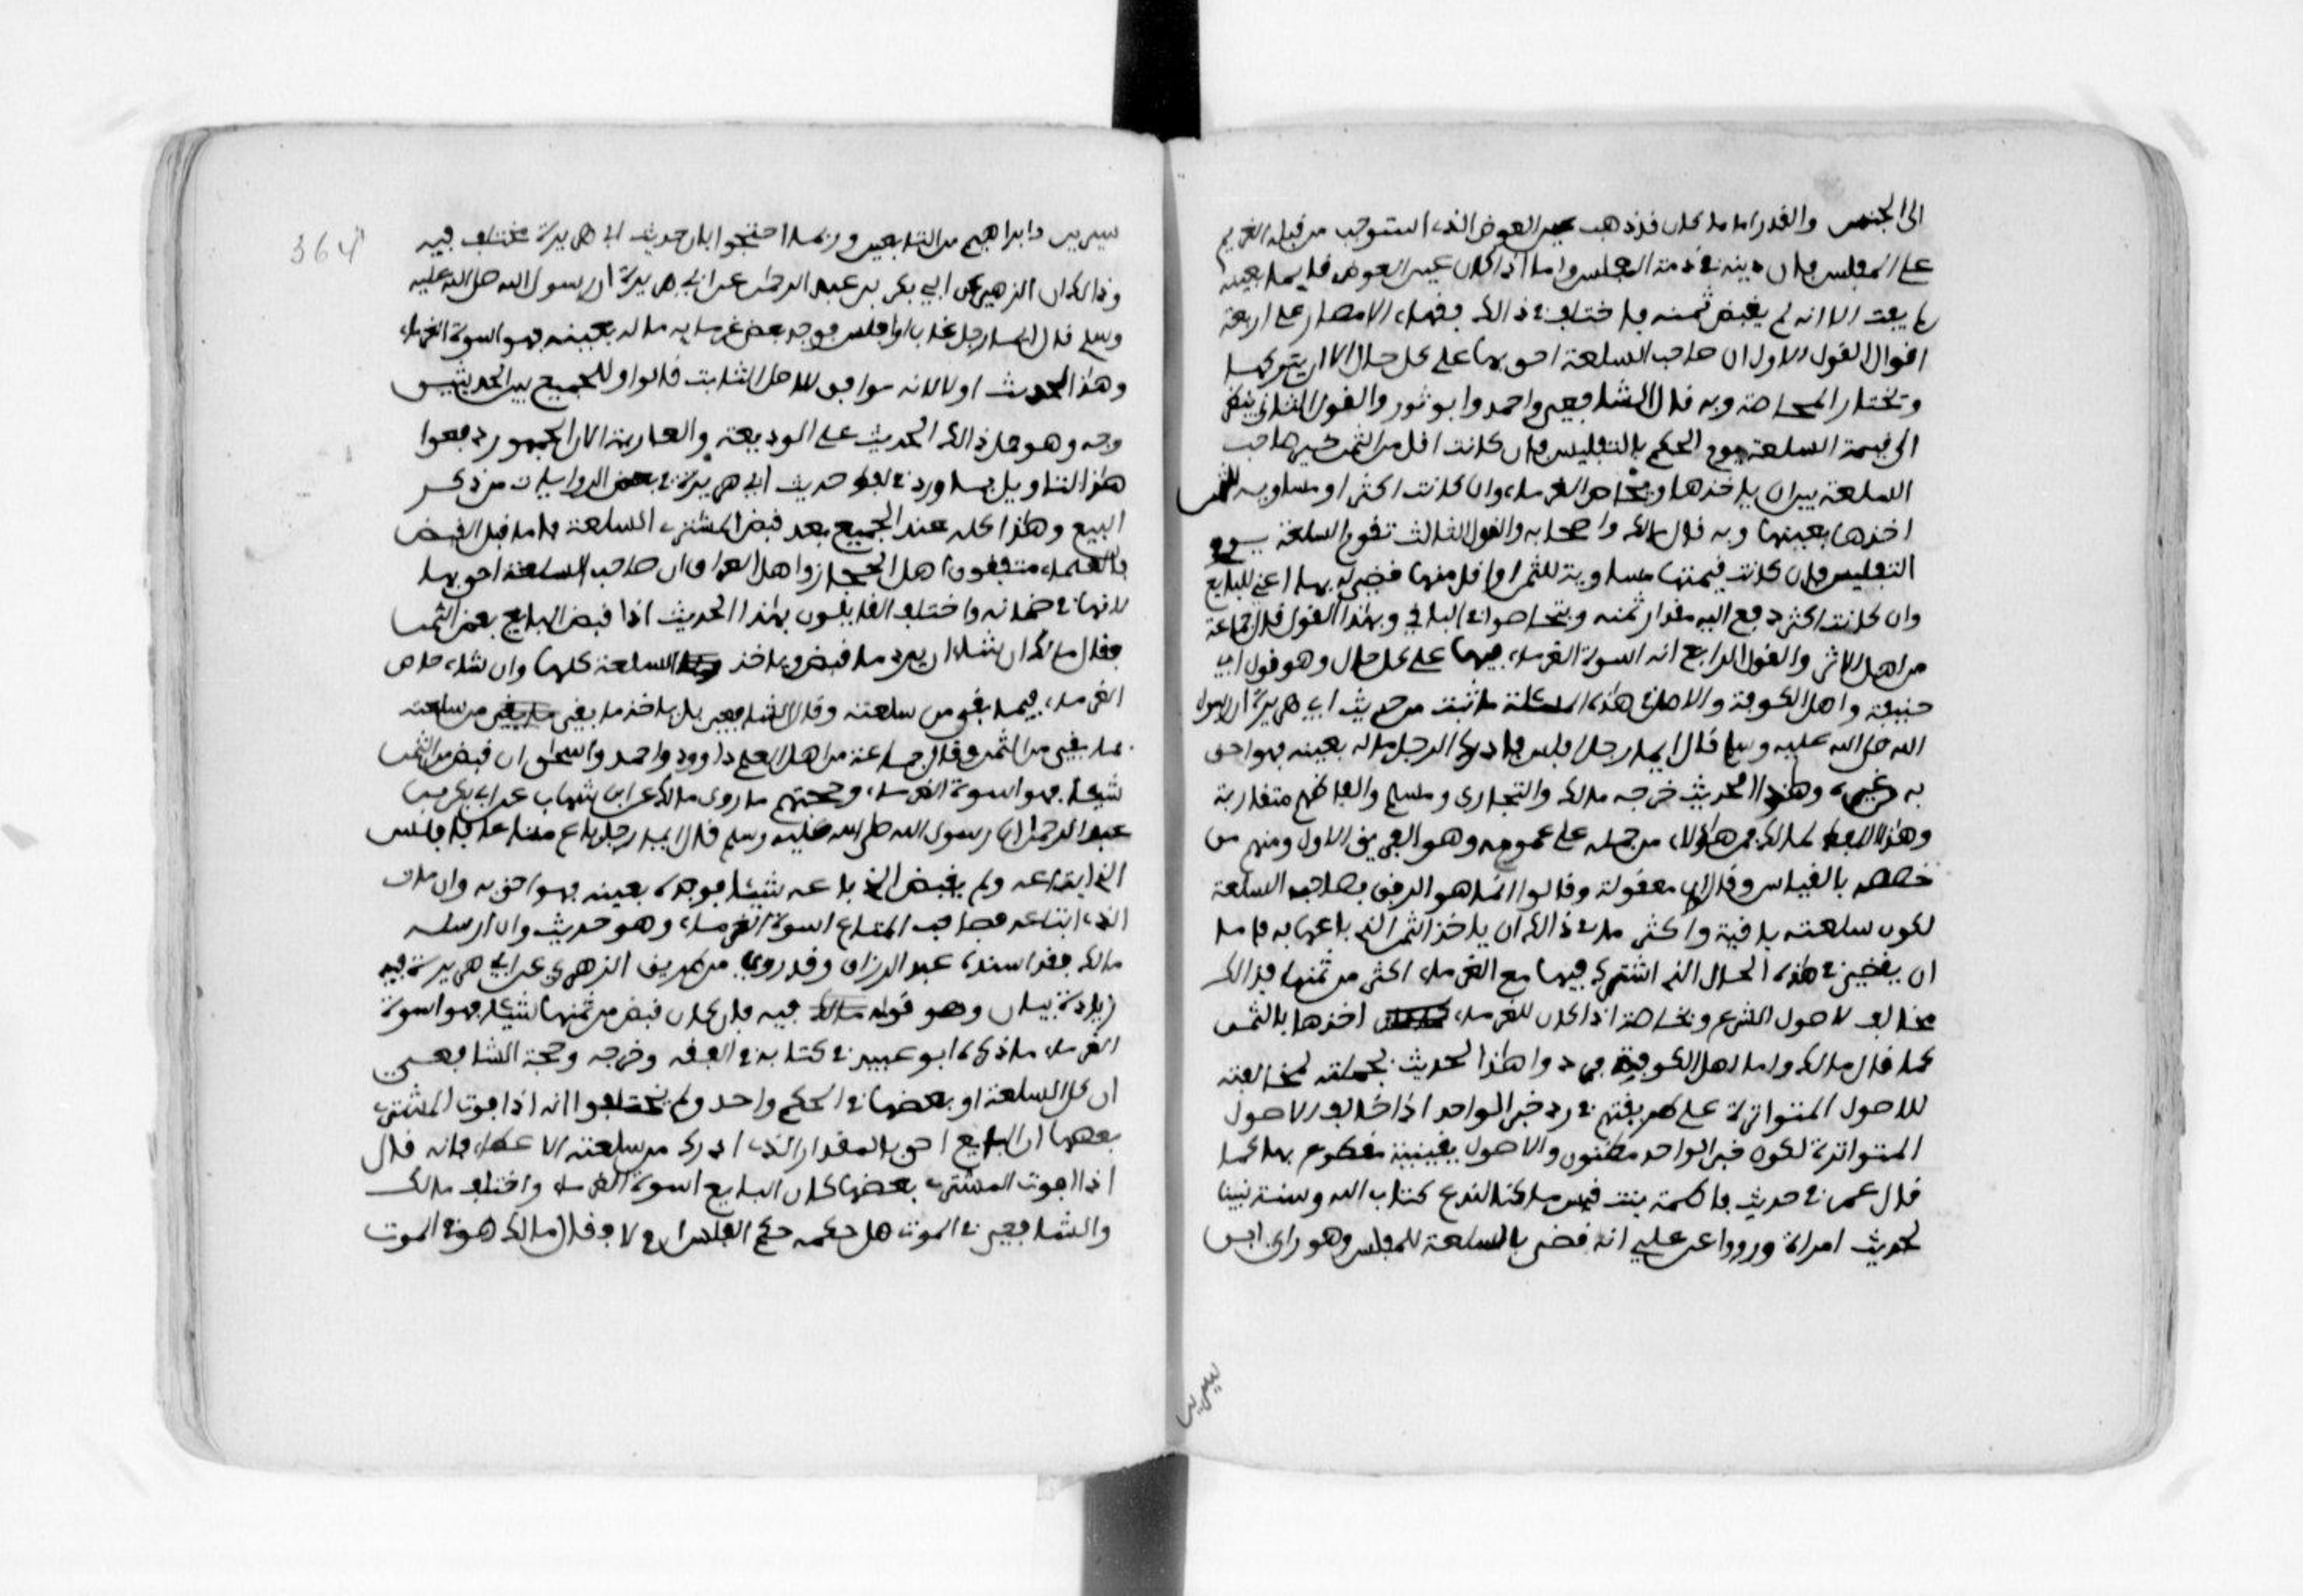 الى الجنس والقدر اما ما كان قد ذهب عين العوض الذي استوجب من قبله الغريم
على المفلس فان دينه في ذمة المفلس واما اذا كان عين العوض قايما بعينه
لم يفت الا انه لم يقبض ثمنه فاختلف في ذالك فقهاء الامصار على اربعة
اقوال القول الاول ان صاحب السلعة احق بها على كل حال الا ان يتركها
ويختار المحاصة وبه قال الشافعي واحمد وابو ثور والقول الثاني ينظر
الى قيمة السلعة يوم الحكم بالتفليس فان كانت اقل من الثمن خير صاحب
السلعة بين ان ياخذها ويحاص الغرماء وان كانت اكثر او مساوية للثمن
اخذها بعينها وبه قال مالك واصحابه والقول الثالث تقوم السلعة يوم
التفليس فان كانت قيمتها مساوية للثمن او اقل منها قضي له بها اعني للبايع
وان كانت اكثر دفع اليه مقدار ثمنه ويتحاصوا في الباقي وبهذا القول قال جماعة
من اهل الاثر والقول الرابع انه اسوة الغرماء فيها على كل حال وهو قول ابي
حنيفة واهل الكوفة والاصل في هذه المسئلة ما ثبت من حديث ابي هريرة ان رسول
الله صلى الله عليه وسلم قال ايما رجل افلس فادرك الرجل ماله بعينه فهو احق
به من غيره وهذا الحديث خرجه مالك والبخاري ومسلم والفاظهم متقاربة
وهذا اللفظ لمالك فمن هاؤلاء من حمله على عمومه وهو الفريق الاول ومنهم من
خصصه بالقياس وقالوا ان معقوله وقالوا انما هو الرفق بصاحب السلعة
لكون سلعته باقية واكثر ما في ذالك ان ياخذ الثمن الذي باعها به فاما
ان يقضي في هذه الحال الذي اشترك فيها مع الغرماء اكثر من ثمنها فذالك
مخالف لاصول الشرع وبخاصة اذا كان للغرماء اخذها بالثمن
كما قال مالك واما اهل الكوفة فردوا هذا الحديث بجملته لمخالفته
للاصول المتواترة على طريقتهم في رد خبر الواحد اذا خالف الاصول
المتواترة لكون خبر الواحد مظنون والاصول يقينية مقطوع بها كما
قال عمر في حديث فاطمة بنت قيس ما كنا لندع كتاب الله وسنة نبينا
لحديث امراة ورووا عن علي انه قضى بالسلعة للمفلس وهو راي ابن
سيرين
364
سيرين وابراهيم من التابعين وربما احتجوا بان حديث ابي هريرة مختلف فيه
وذالك ان الزهري عن ابي بكر بن عبد الرحمن عن ابي هريرة ان رسول الله صلى الله عليه
وسلم قال ايما رجل مات او افلس فوجد بعض غرمايه ماله بعينه فهو اسوة الغرماء
وهذا الحديث اولا لانه موافق للاصل الثابت قالوا وللجميع بين الحديثين
وجه وهو حمل ذالك الحديث على الوديعة والعارية الا ان الجمهور دفعوا
هذا التاويل بما ورد في لفظ حديث ابي هريرة في بعض الروايات من ذكر
البيع وهذا كله عند الجميع بعد قبض المشتري السلعة فاما قبل القبض
فالعلماء متفقون اهل الحجاز واهل العراق ان صاحب السلعة احق بها
لانها في ضمانه واختلف القايلون بهذا الحديث اذا قبض البايع بعض الثمن
فقال مالك ان شاء ان يرد ما قبض وياخذ السلعة كلها وان شاء حاص
الغرماء فيما بقي من سلعته وقال الشافعي بل ياخذ ما بقي من سلعته
بما بقي من الثمن وقال جماعة من اهل العلم داوود واحمد واسحاق ان قبض من الثمن
شيئا فهو اسوة الغرماء وحجتهم ما روى مالك عن ابن شهاب عن ابي بكر بن
عبد الرحمن ان رسول الله صلى الله عليه وسلم قال ايما رجل باع متاعا فافلس
الذي ابتاعه ولم يقبض الذي باعه شيئا فوجده بعينه فهو احق به وان مات
الذي ابتاعه فصاحب المتاع اسوة الغرماء وهو حديث وان ارسله
مالك فقد اسنده عبد الرزاق وقد روي من طريق الزهري عن ابي هريرة فيه
زيادة بيان وهو قوله فيه فان كان قبض من ثمنها شيئا فهو اسوة
الغرماء ما ذكره ابو عبيد في كتابه في الفقه وخرجه وحجة الشافعي
ان كل السلعة او بعضها في الحكم واحد ولم يختلفوا انه اذا فوت المشتري
بعضها ان البايع احق بالمقدار الذي ادرك من سلعته الا عطاء فانه قال
اذا فوت المشتري بعضها كان البايع اسوة الغرماء واختلف مالك
والشافعي في الموت هل حكمه حكم الفلس ام لا فقال مالك هو في الموت